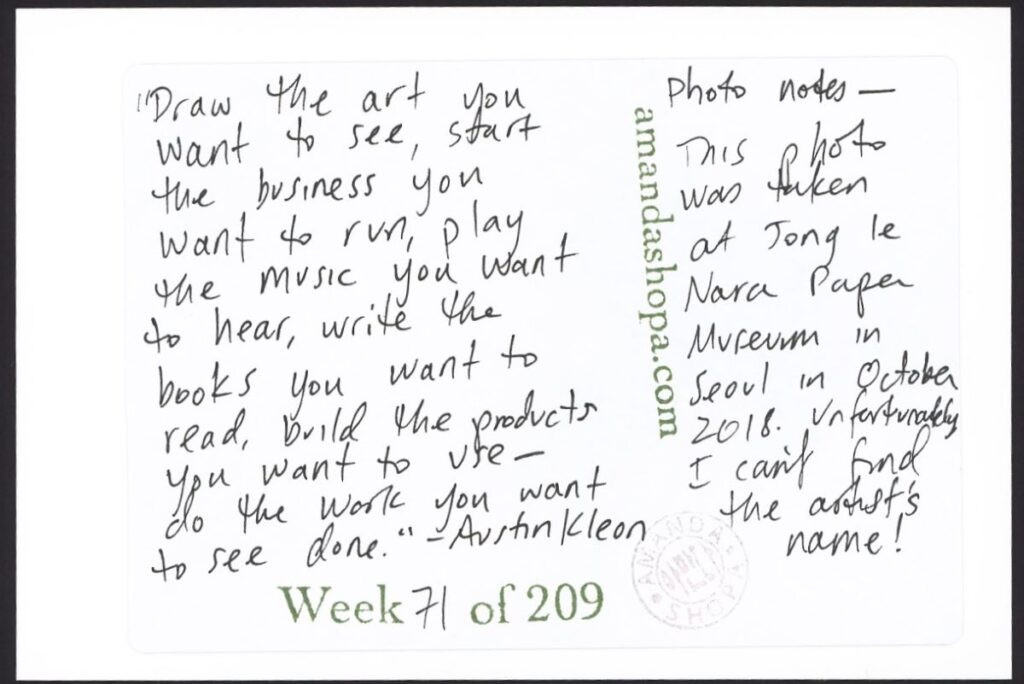 "Draw the art you
want to see, start
the business you
want to run, play
the music you want
to hear, write the
books you want to
read, build the products
you want to use —
do the work you want
to see done." – Austin Kleon
Week 71 of 209
amandashopa.com
Photo notes —
This photo
was taken
at Jong Ie
Nara Paper
Museum in
Seoul in October
2018. Unfortunately
I can't find
the artist's
name!
AMANDA
SHOPA